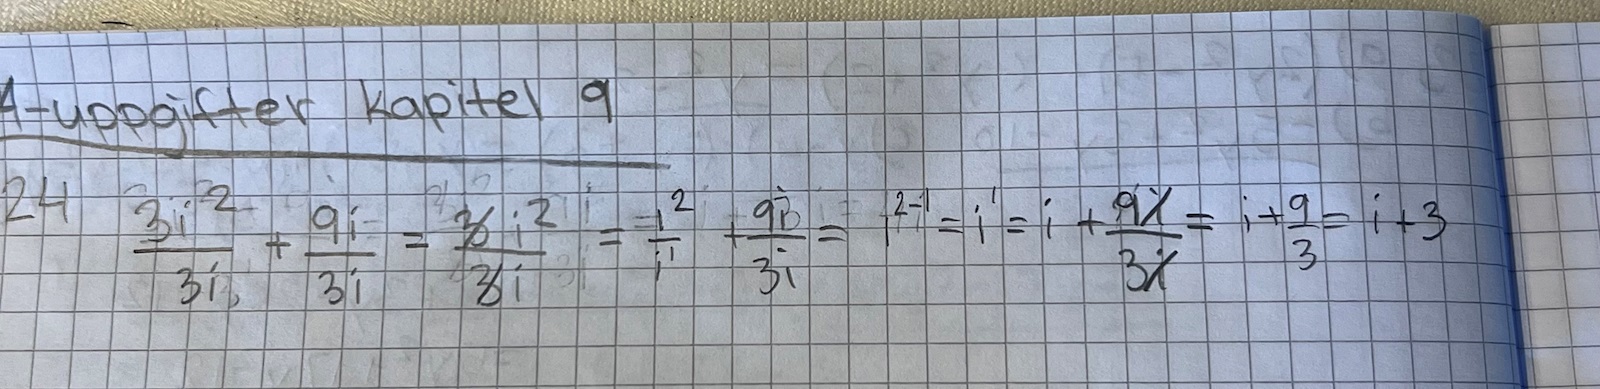 A-uppgifter kapitel 9
24 3i²/3i + 9i/3i = 3i²/3i = i²/i¹ + 9i/3i = i²⁻¹ = i¹ = i + 9i/3i = i + 9/3 = i + 3